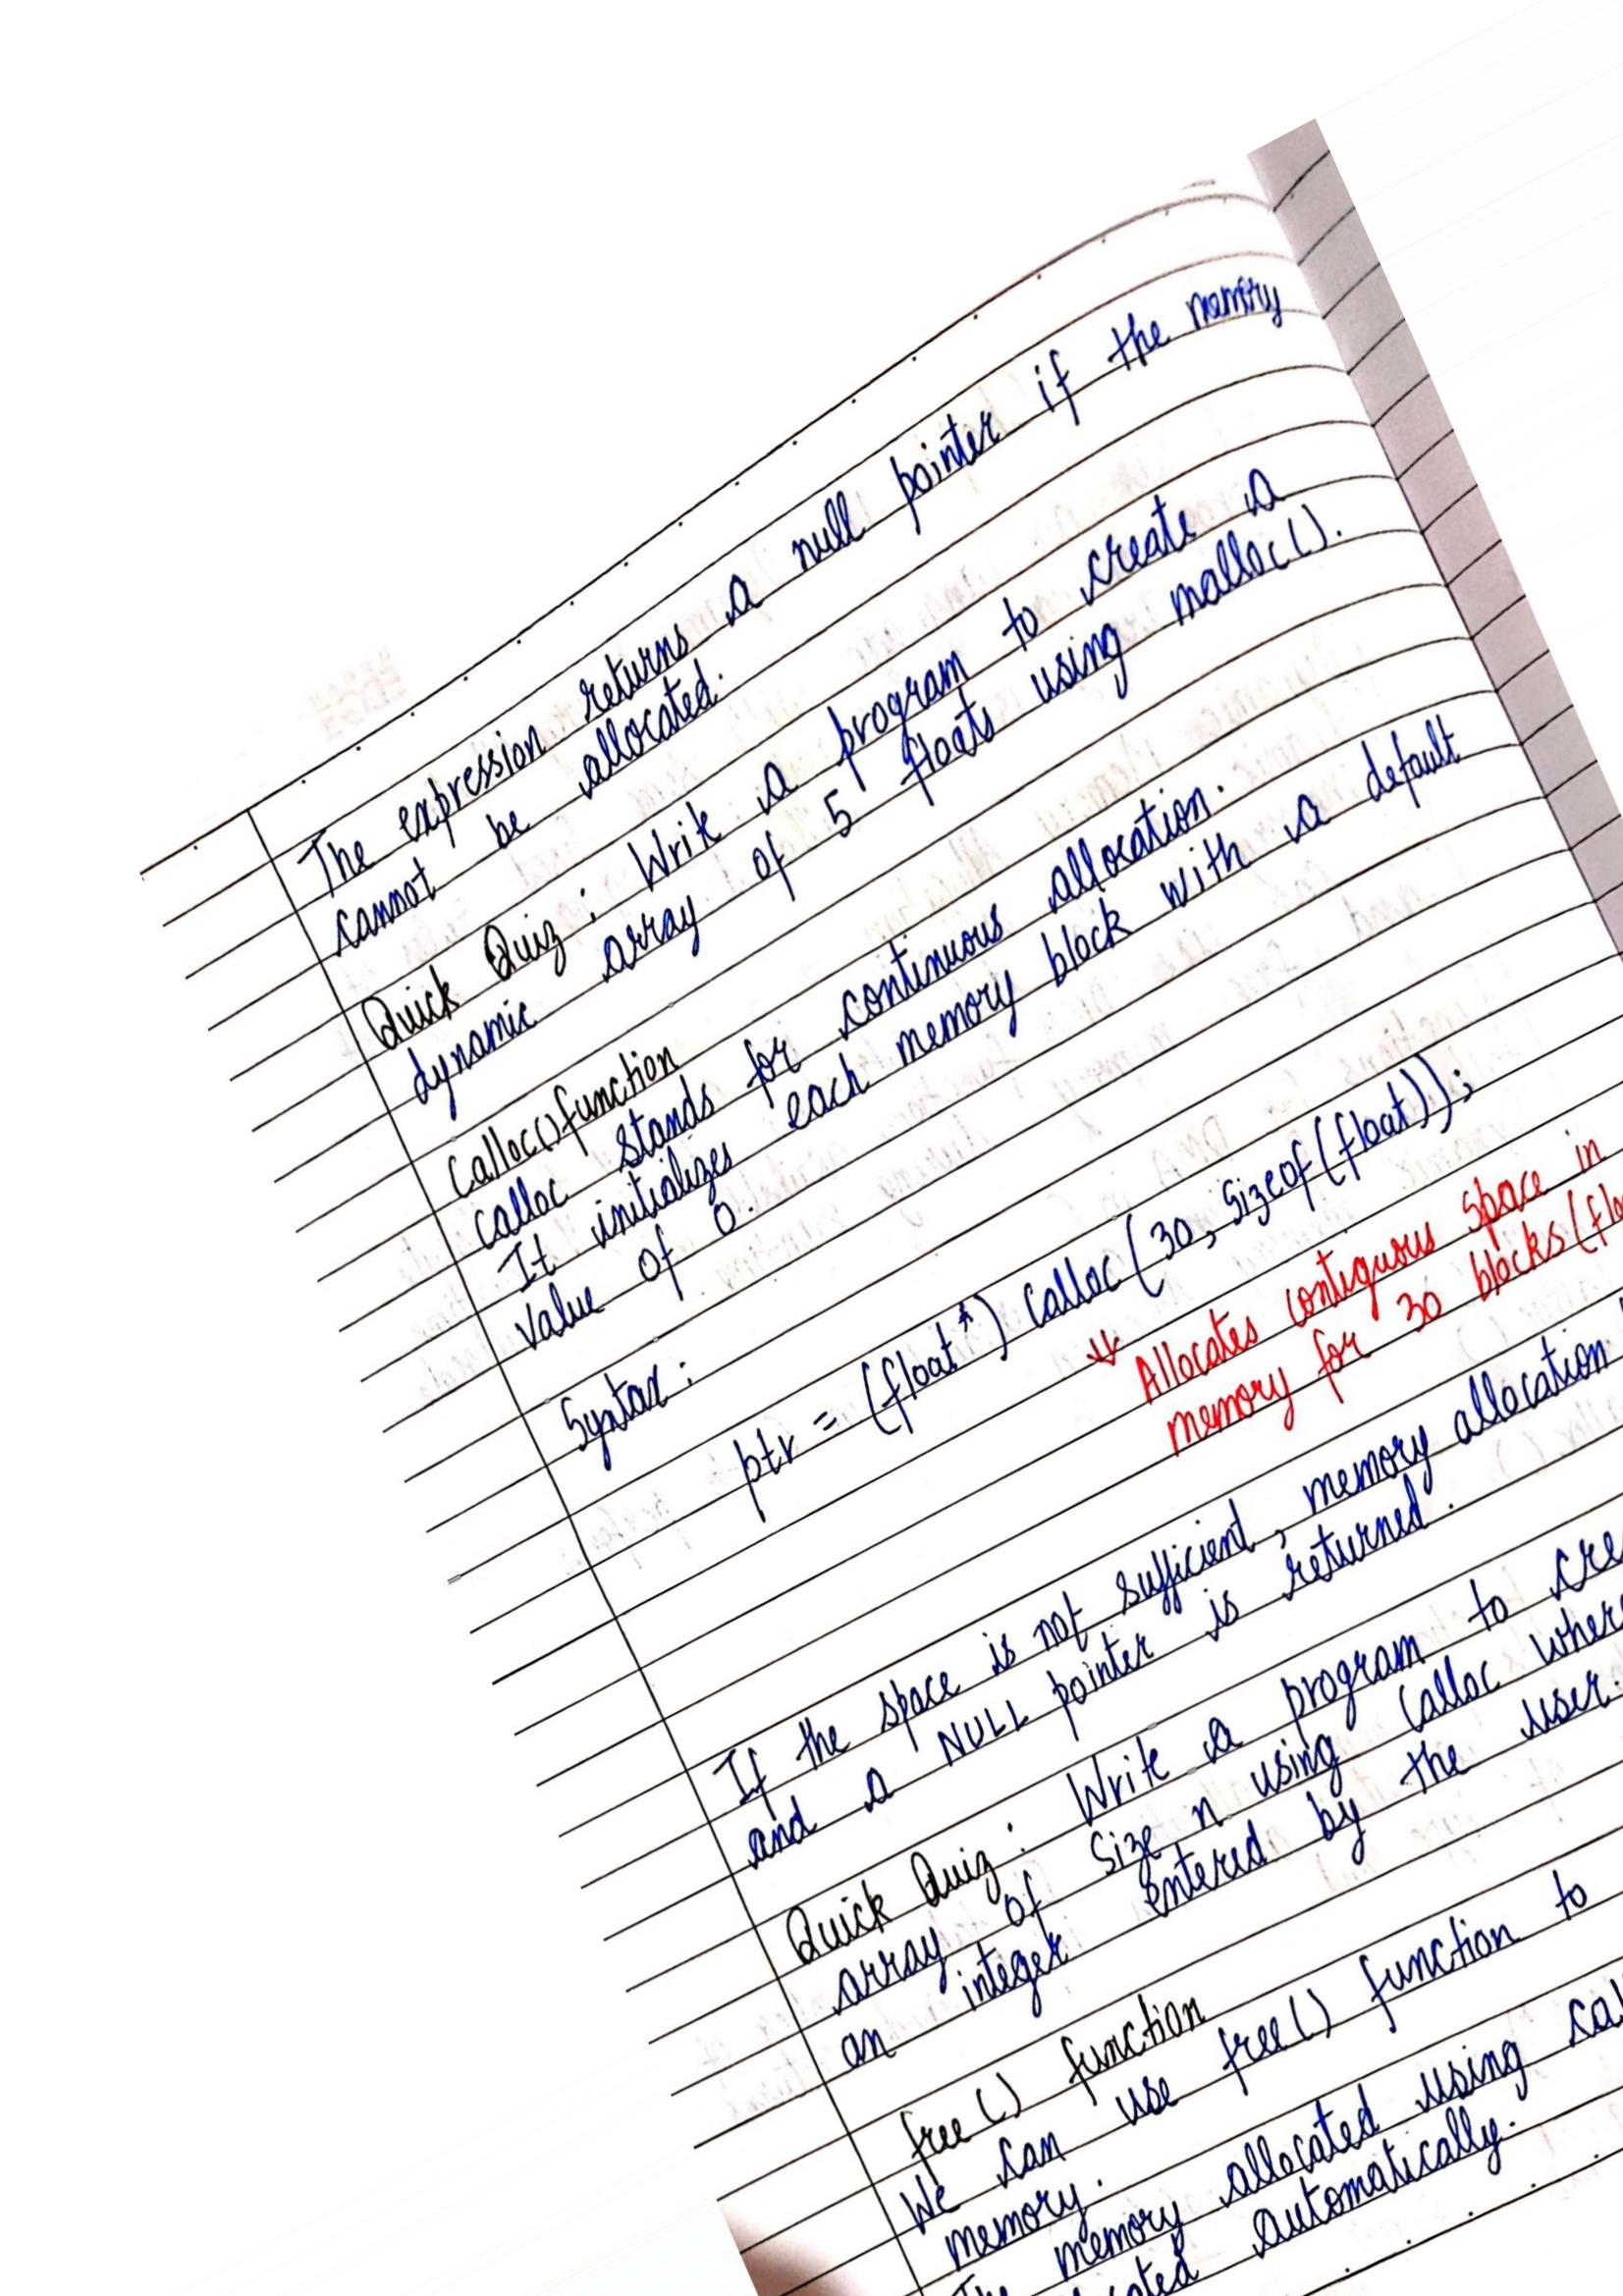 The expression returns a null pointer if the memory
cannot be allocated.
Quick Quiz : Write a program to create a
dynamic array of 5 floats using malloc().
Calloc() function
calloc stands for continuous allocation.
It initializes each memory block with a default
value of 0.
Syntax :
ptr = (float*) calloc (30, sizeof(float));
Allocates contiguous space in
memory for 30 blocks (flo
If the space is not sufficient, memory allocation
and a NULL pointer is returned.
Quick Quiz : Write a program to cre
array of size n using calloc wher
an integer entered by the user.
free() function
We can use free() function to
memory.
The memory allocated using cal
ated automatically.